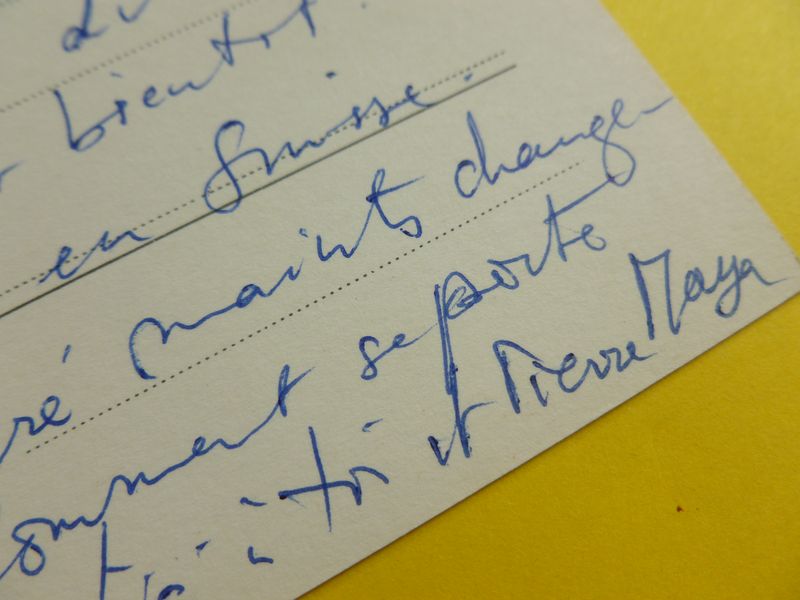 bientôt.
en Suisse.
ré maints change
comment se porte
à toi et Pierre Maya